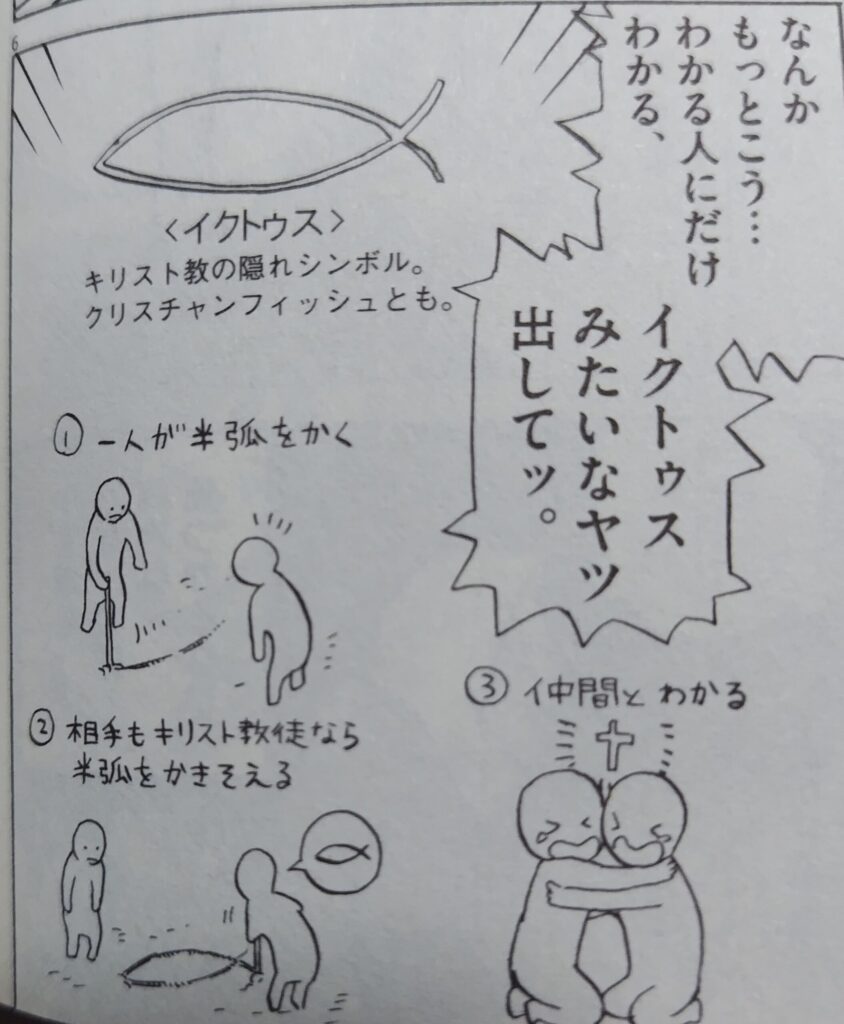 なんか
もっとこう…
わかる人にだけ
わかる、
イクトゥス
みたいなヤツ
出してッ。
<イクトゥス>
キリスト教の隠れシンボル。
クリスチャンフィッシュとも。
① 一人が半弧をかく
② 相手もキリスト教徒なら
半弧をかきそえる
③ 仲間とわかる
6